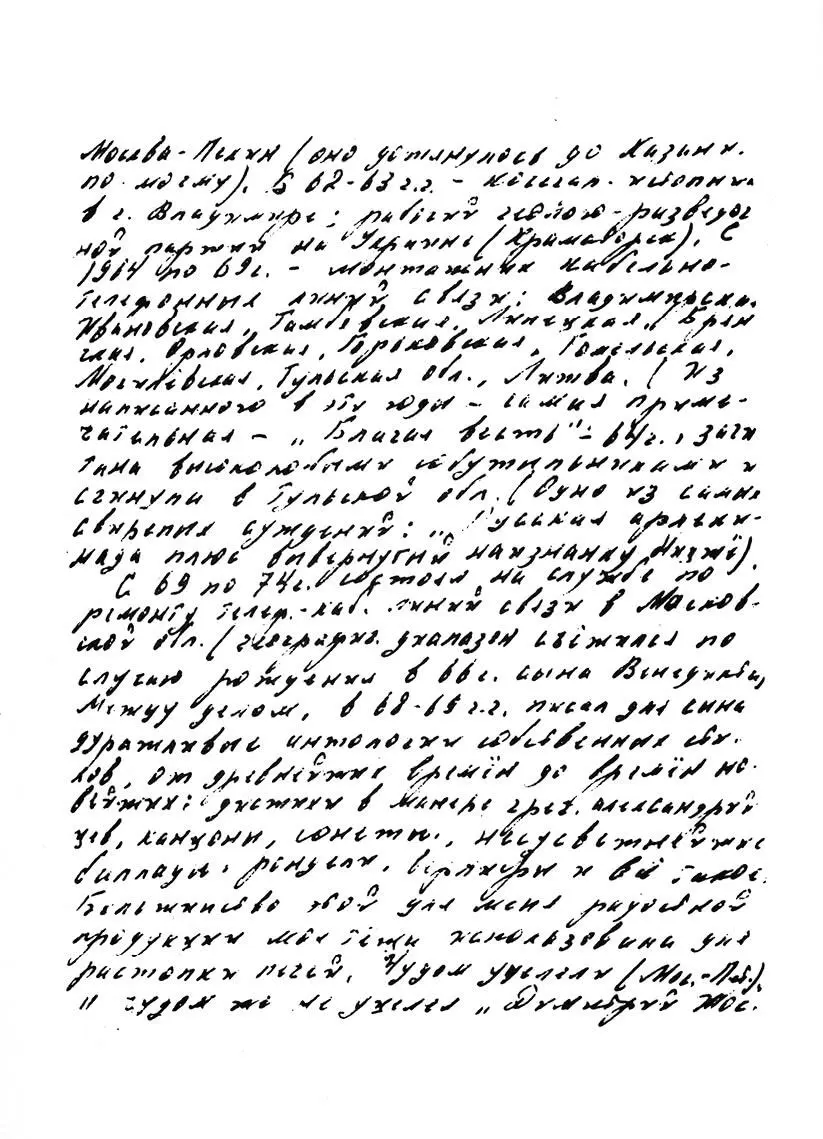 Москва-Пекин (оно дотянулось до Казани.
по-моему). В 62-63 г.г. – кочегар-истопник
в г. Владимире; рабочий геолого-разведоч
ной партии на Украине (Краматорск). С
1964 по 69 г. – монтажник кабельно-
телефонных линий связи: Владимирская,
Ивановская, Тамбовская, Липецкая, Брян
ская, Орловская, Горьковская, Гомельская,
Могилёвская, Тульская обл., Литва. (Из
написанного в эти годы – самая приме-
чательная – „Благая весть"- 64 г., зачи
тана высоколобыми собутыльниками и
сгинула в Тульской обл. (Одно из самых
свирепых суждений: „Русская арлеки-
нада плюс вывернутый наизнанку Ницше).
С 69 по 74 г. состоял на службе по
ремонту телеф.-каб. линий связи в Москов-
ской обл. (географич. диапазон съёжился по
случаю рождения в 66 г. сына Венедикта,
Между делом, в 68-69 г.г. писал для сына
дуражливые антологии собственных сти-
хов, от древнейших времён до времён но-
вейших: дистихи в манере греч. александрий
цев, канцоны, сонеты, несусветнейшие
баллады, рондели, верлибры и всё такое.
Большинство этой для меня радостной
продукции моя тёща использовала для
растопки печей. Чудом уцелели (Мос.-Пет.),
и чудом же не уцелел „Димитрий Шос.